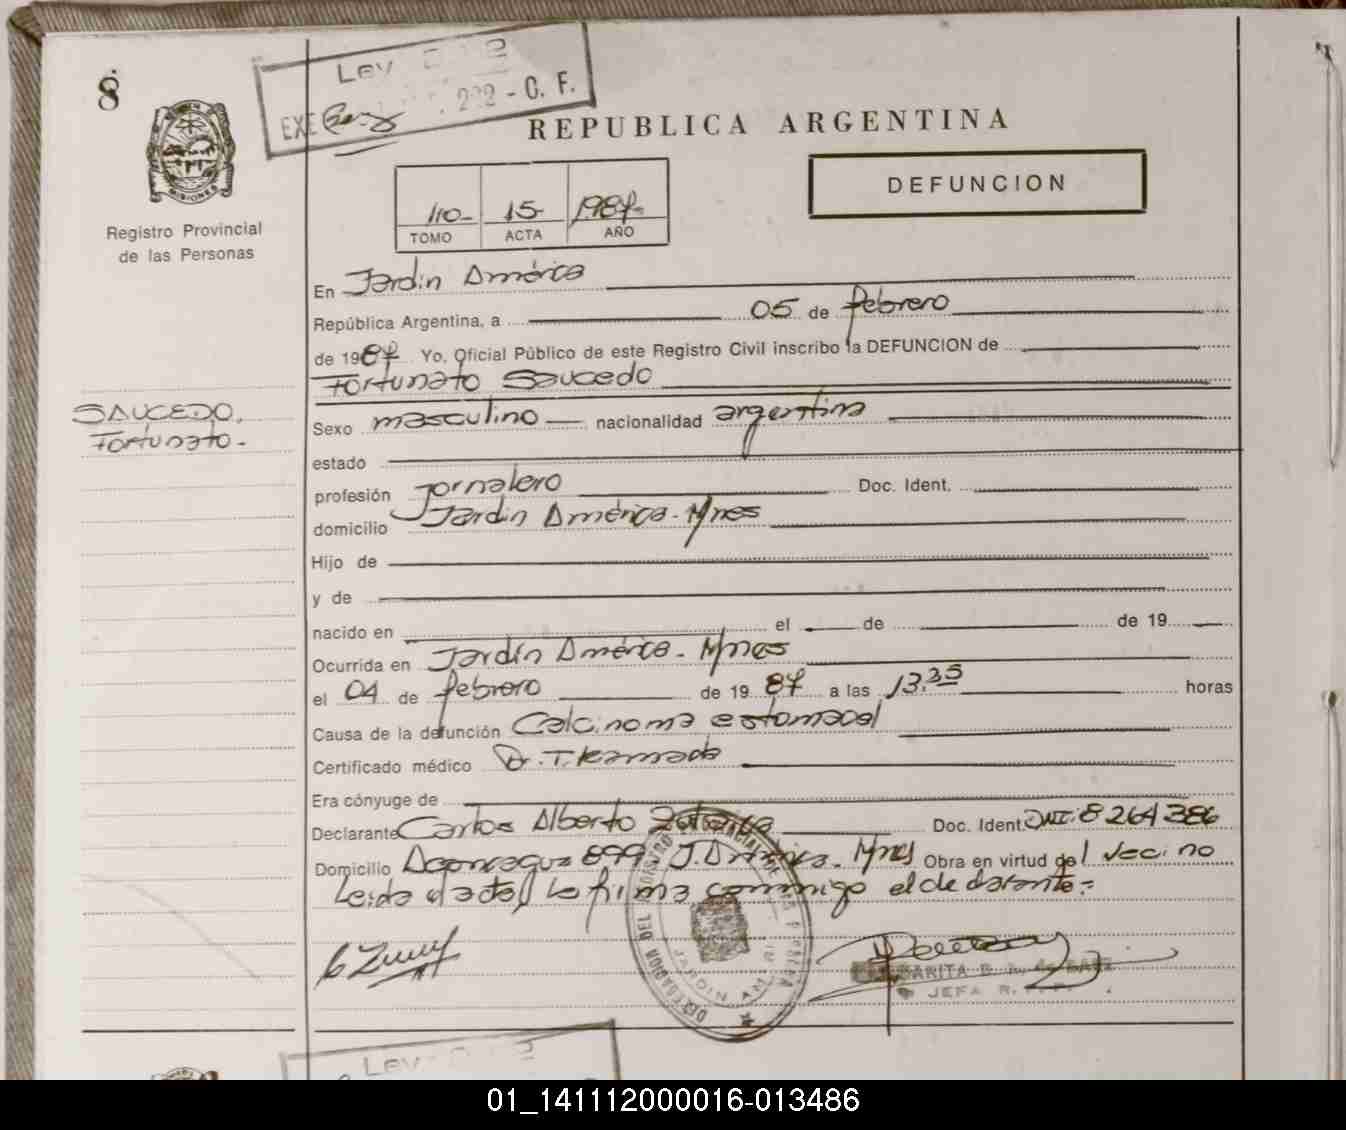 8
LEY
EXE 202 - C. F.
REPUBLICA ARGENTINA
DEFUNCION
110- 15- 1987-
TOMO ACTA AÑO
MISIONES
Registro Provincial
de las Personas
En Jardin América
República Argentina, a 05 de febrero
de 1987 Yo, Oficial Público de este Registro Civil inscribo la DEFUNCION de
Fortunato Saucedo
SAUCEDO,
Fortunato-
Sexo masculino nacionalidad argentina
estado
profesión Jornalero Doc. Ident.
domicilio Jardin América- Mnes
Hijo de
y de
nacido en el de de 19
Ocurrida en Jardin América- Mnes
el 04 de febrero de 1987 a las 13.35 horas
Causa de la defunción Calcinoma estomacal
Certificado médico Dr. T. Kamada
Era cónyuge de
Declarante Carlos Alberto Doc. Ident. DNI: 8264386
Domicilio Aconcagua 899 J. América- Mnes Obra en virtud del vecino
Leida el acta, la firma conmigo el declarante-
JARDIN AM
JEFA R. P. P.
LEY
01_141112000016-013486